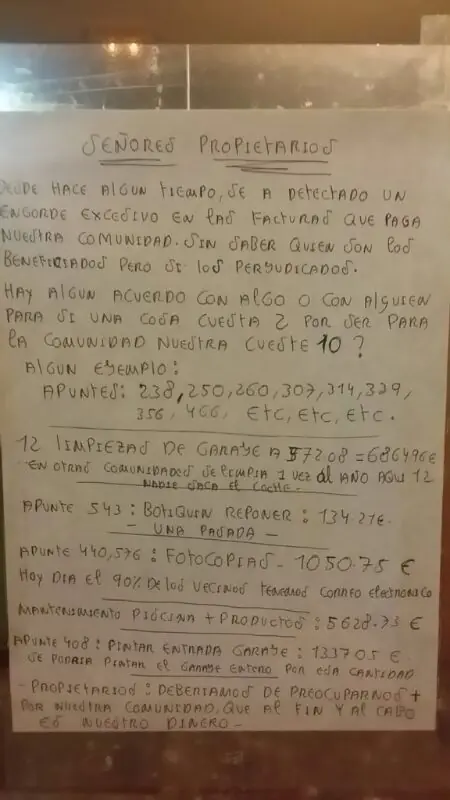 SEÑORES PROPIETARIOS
DESDE HACE ALGUN TIEMPO, SE A DETECTADO UN
ENGORDE EXCESIVO EN LAS FACTURAS QUE PAGA
NUESTRA COMUNIDAD. SIN SABER QUIEN SON LOS
BENEFICIADOS PERO SI LOS PERJUDICADOS.
HAY ALGUN ACUERDO CON ALGO O CON ALGUIEN
PARA SI UNA COSA CUESTA 2 POR SER PARA
LA COMUNIDAD NUESTRA CUESTE 10?
ALGUN EJEMPLO:
APUNTES: 238, 250, 260, 307, 314, 329,
356, 466, ETC, ETC, ETC.
12 LIMPIEZAS DE GARAJE A 57208 = 686496€
EN OTRAS COMUNIDADES SE LIMPIA 1 VEZ AL AÑO AQUI 12
NADIE SACA EL COCHE-
APUNTE 543: BOTIQUIN REPONER: 134.21€-
- UNA PASADA -
APUNTE 440, 576: FOTOCOPIAS - 1050.75 €
HOY DIA EL 90% DE LOS VECINOS TENEMOS CORREO ELECTRONICO
MANTENIMIENTO PISCINA + PRODUCTOS: 5628.73 €
APUNTE 408: PINTAR ENTRADA GARAJE: 133705 €.
SE PODRIA PINTAR EL GARAJE ENTERO POR ESA CANTIDAD
- PROPIETARIOS: DEBERIAMOS DE PREOCUPARNOS +
POR NUESTRA COMUNIDAD. QUE AL FIN Y AL CABO
ES NUESTRO DINERO -